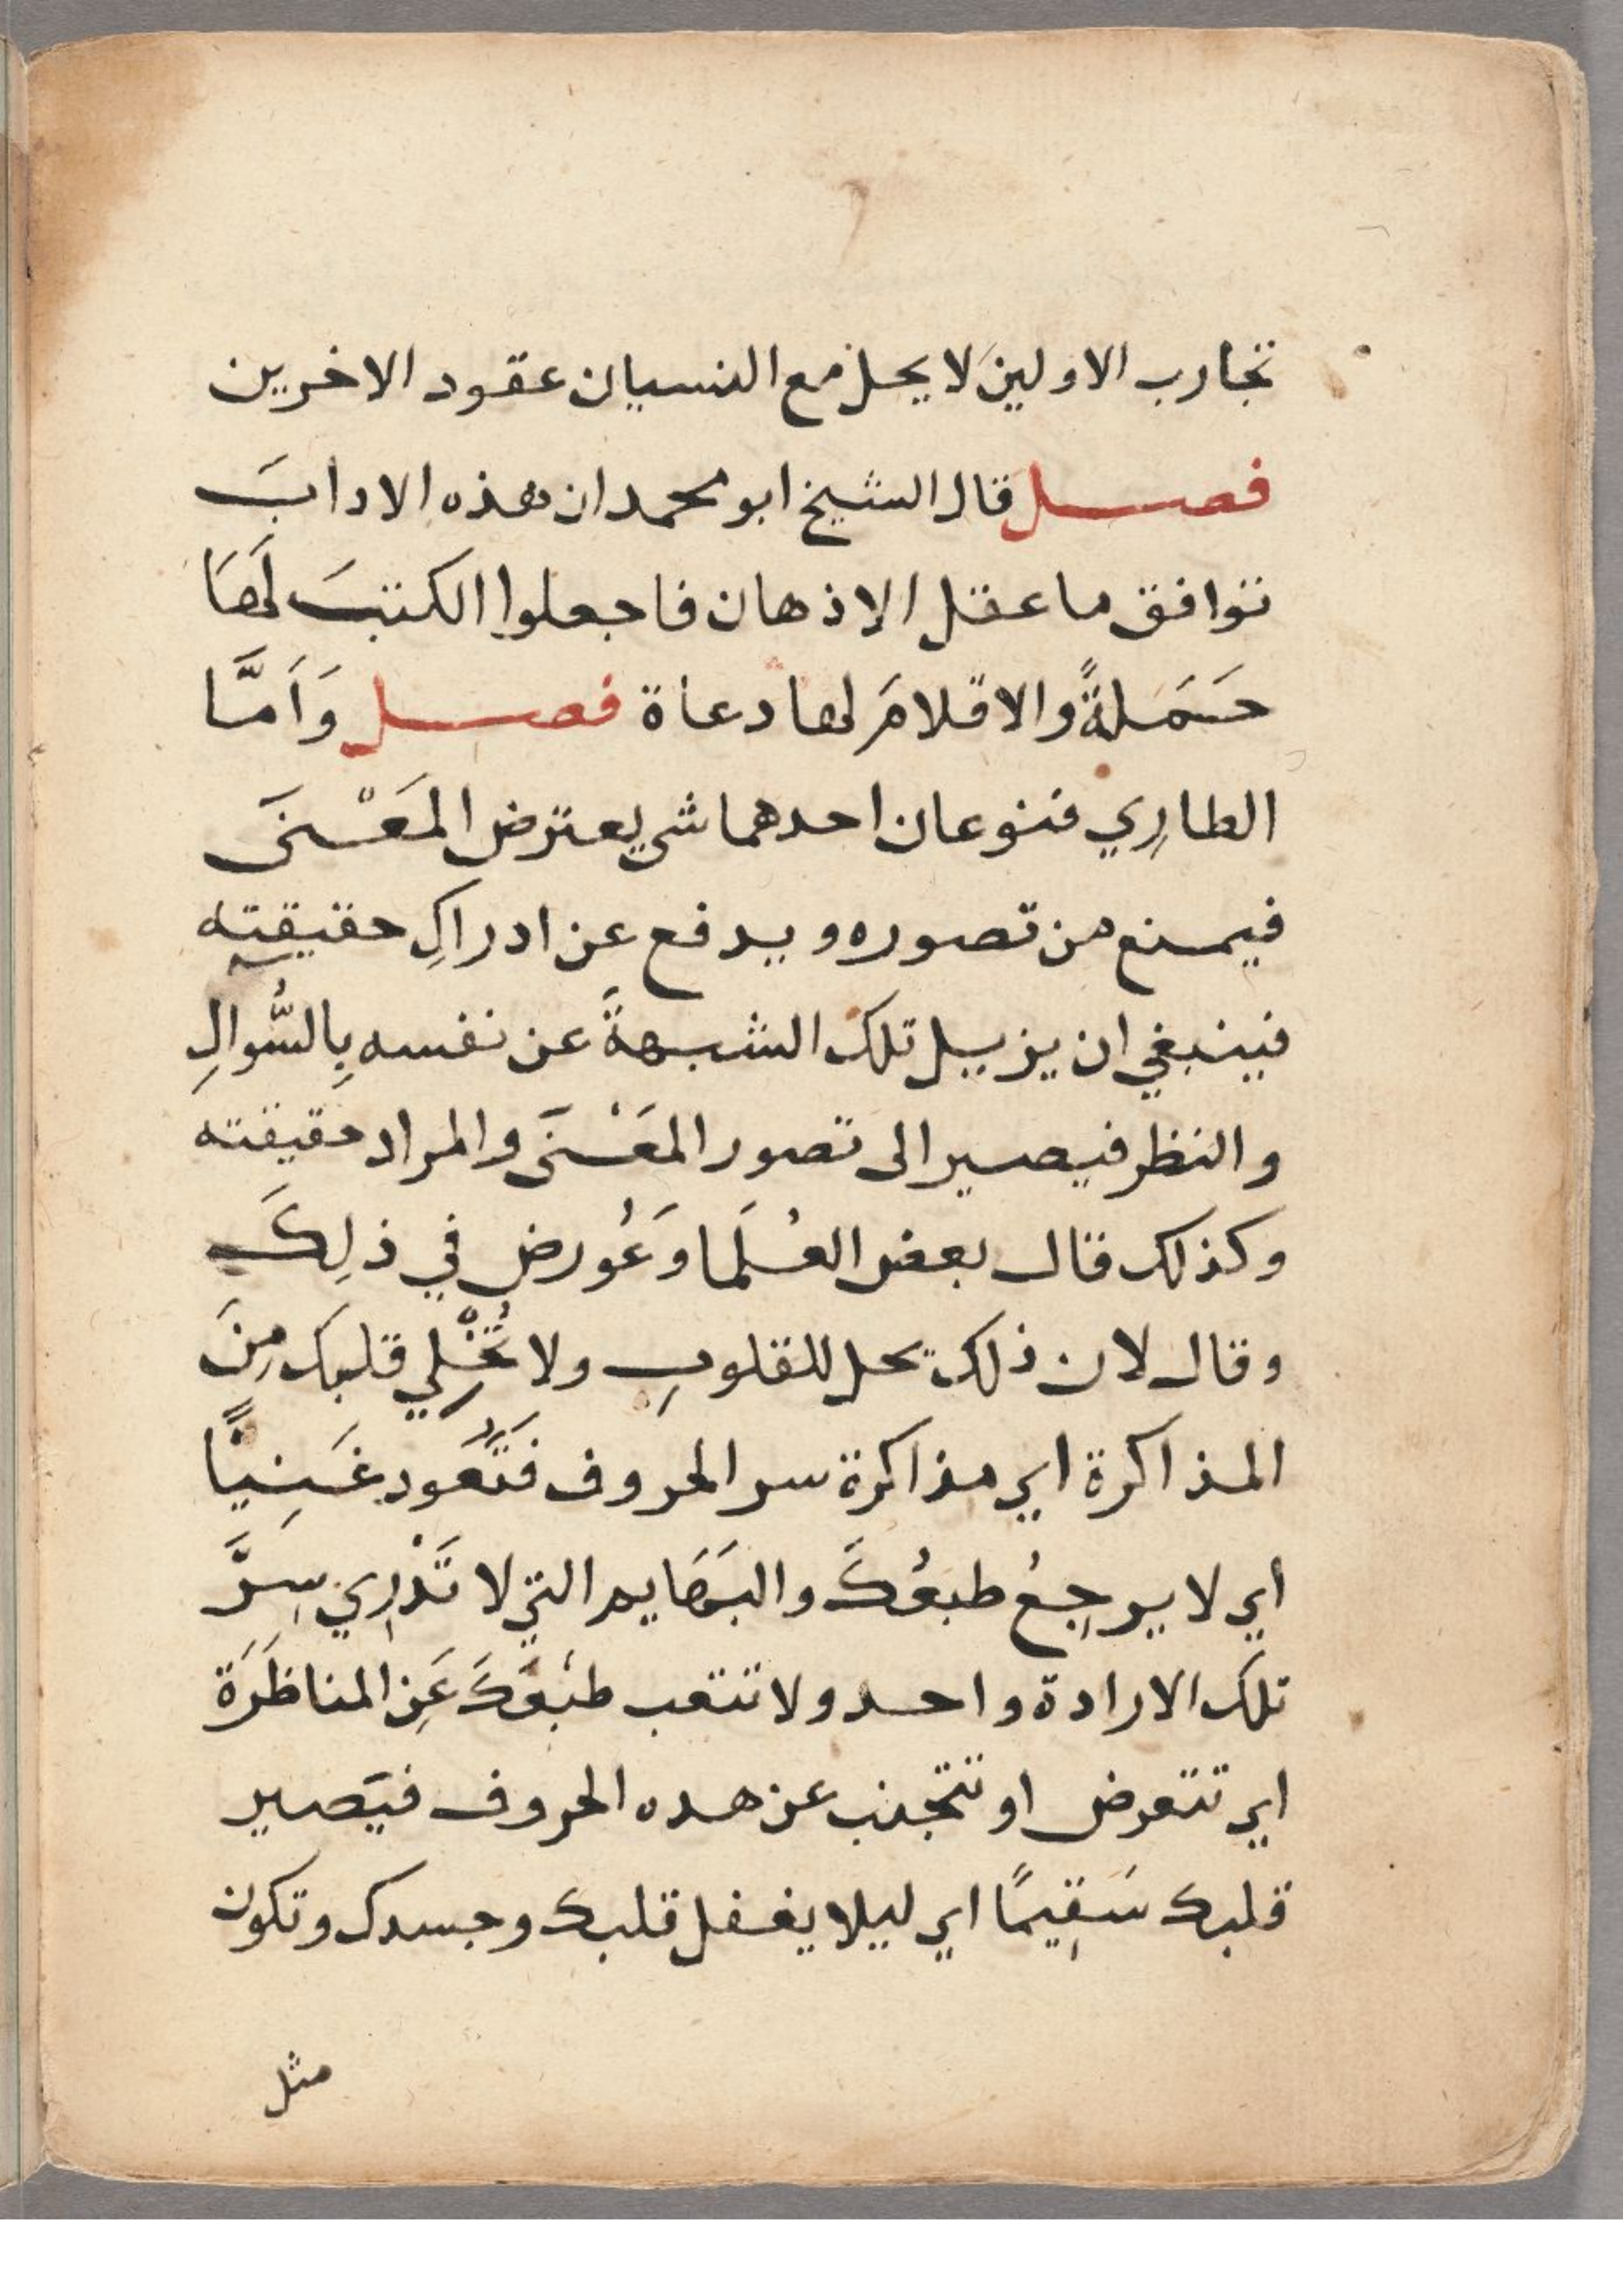 تجارب الاولينَ لا يحل مع النسيان عقود الاخرين
فصل قال الشيخ ابو محمد ان هذه الادابَ
توافق ما عقل الاذهان فاجعلوا الكتبَ لَهَا
حَمَلةً والاقلامَ لها دعاة فصل وَاَمَّا
الطارِي فنوعان احدهما شي يعترض المَعْنَى
فيمنع من تصوره ويدفع عن ادراكِ حقيقته
فينبغي ان يزيل تلك الشبهةَ عن نفسه بِالسُّوالِ
والنظر فيصير الى تصور المَعْنَى والمراد حقيقته
وكذلك قال بعض العُلَما وَعُورض في ذلِكَ
وقال لان ذلك يحل للقلوبِ ولا تُخْلِي قلبك مِنَ
المذاكرة اي مذاكرة سر الحروف فَتَعُود غَنِيًّا
اي لا يرجِعُ طبعُكَ والبَهَايم التي لا تَدْرِي سِرَّ
تلك الارادة واحد ولا تتعب طبْعَكَ عَنِ المناظَرَة
اي تتعرض او تتجنب عن هده الحروف فيَصير
قلبك سَقِيمًا اي ليلا يغفل قلبك وجسدك وتكون
مثل